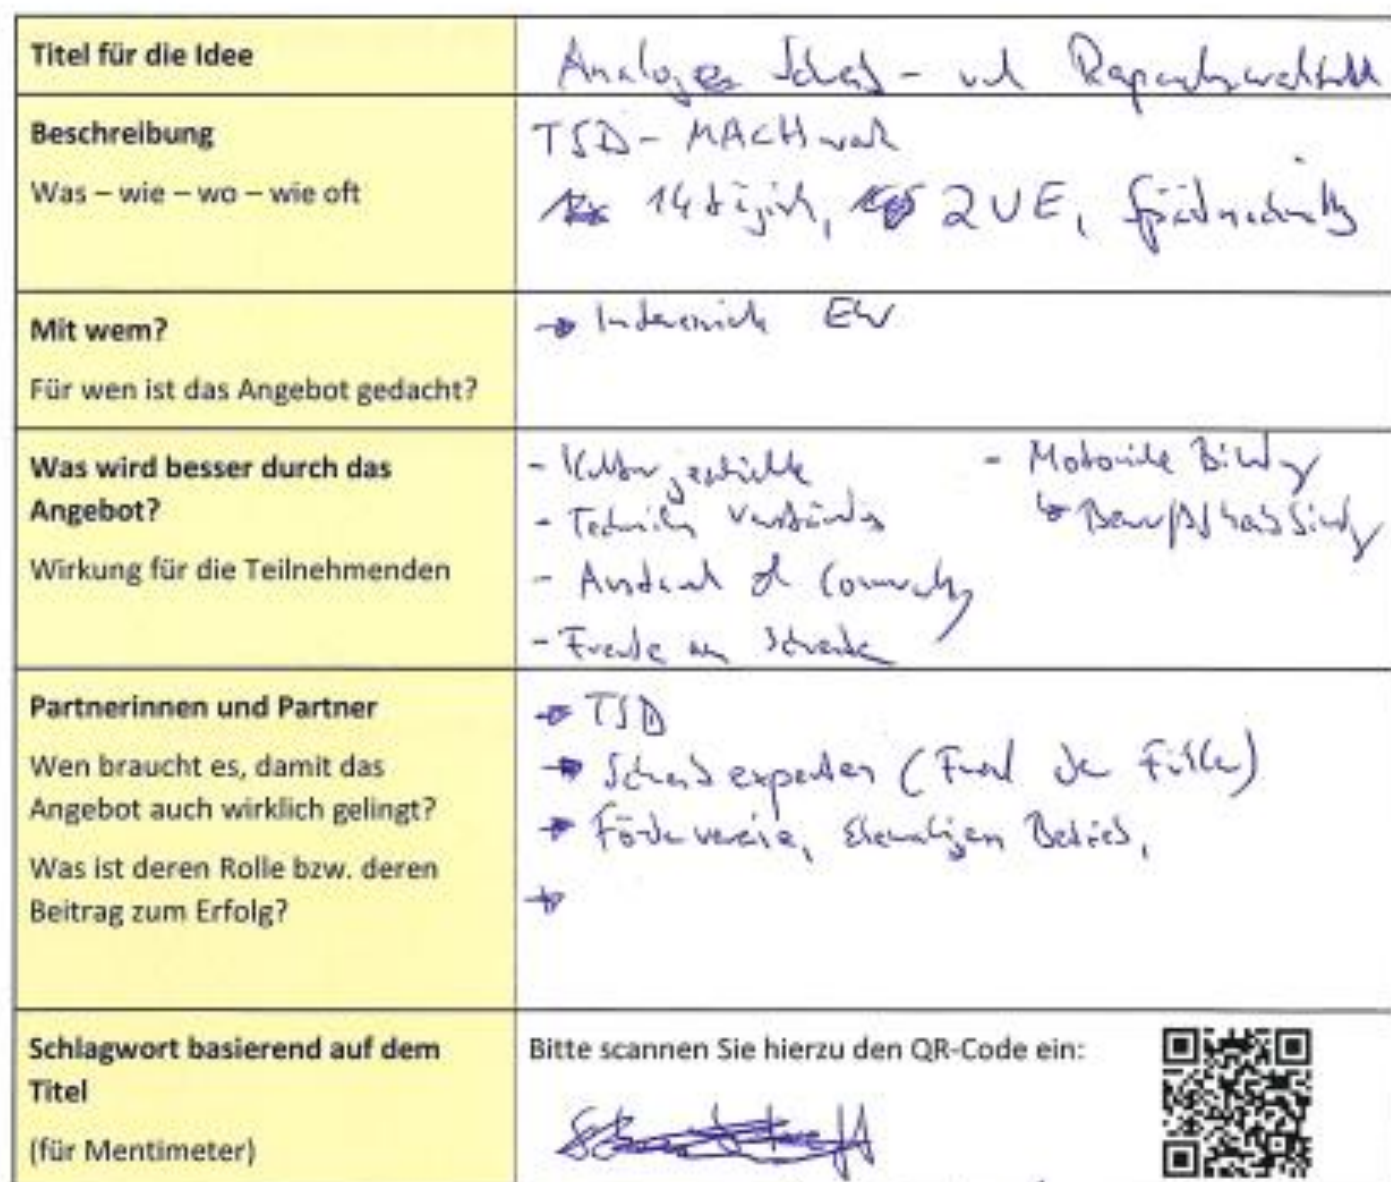 Titel für die Idee
Analoge Schreib- und Reparaturwerkstatt
Beschreibung
Was – wie – wo – wie oft
TSD - MACHwerk
14 tägig, 2 UE, Spätnachmittag
Mit wem?
Für wen ist das Angebot gedacht?
→ Interessierte EW
Was wird besser durch das
Angebot?
Wirkung für die Teilnehmenden
- Kulturgeschichte
- Technisches Verständnis
- Austausch & Community
- Freude am Schreiben
- Motorische Bildung
↳
Partnerinnen und Partner
Wen braucht es, damit das
Angebot auch wirklich gelingt?
Was ist deren Rolle bzw. deren
Beitrag zum Erfolg?
→ TSD
→ Schreibexperten (
→ Fördervereine, ehemaligen Betrieb,
→
Schlagwort basierend auf dem
Titel
(für Mentimeter)
Bitte scannen Sie hierzu den QR-Code ein: